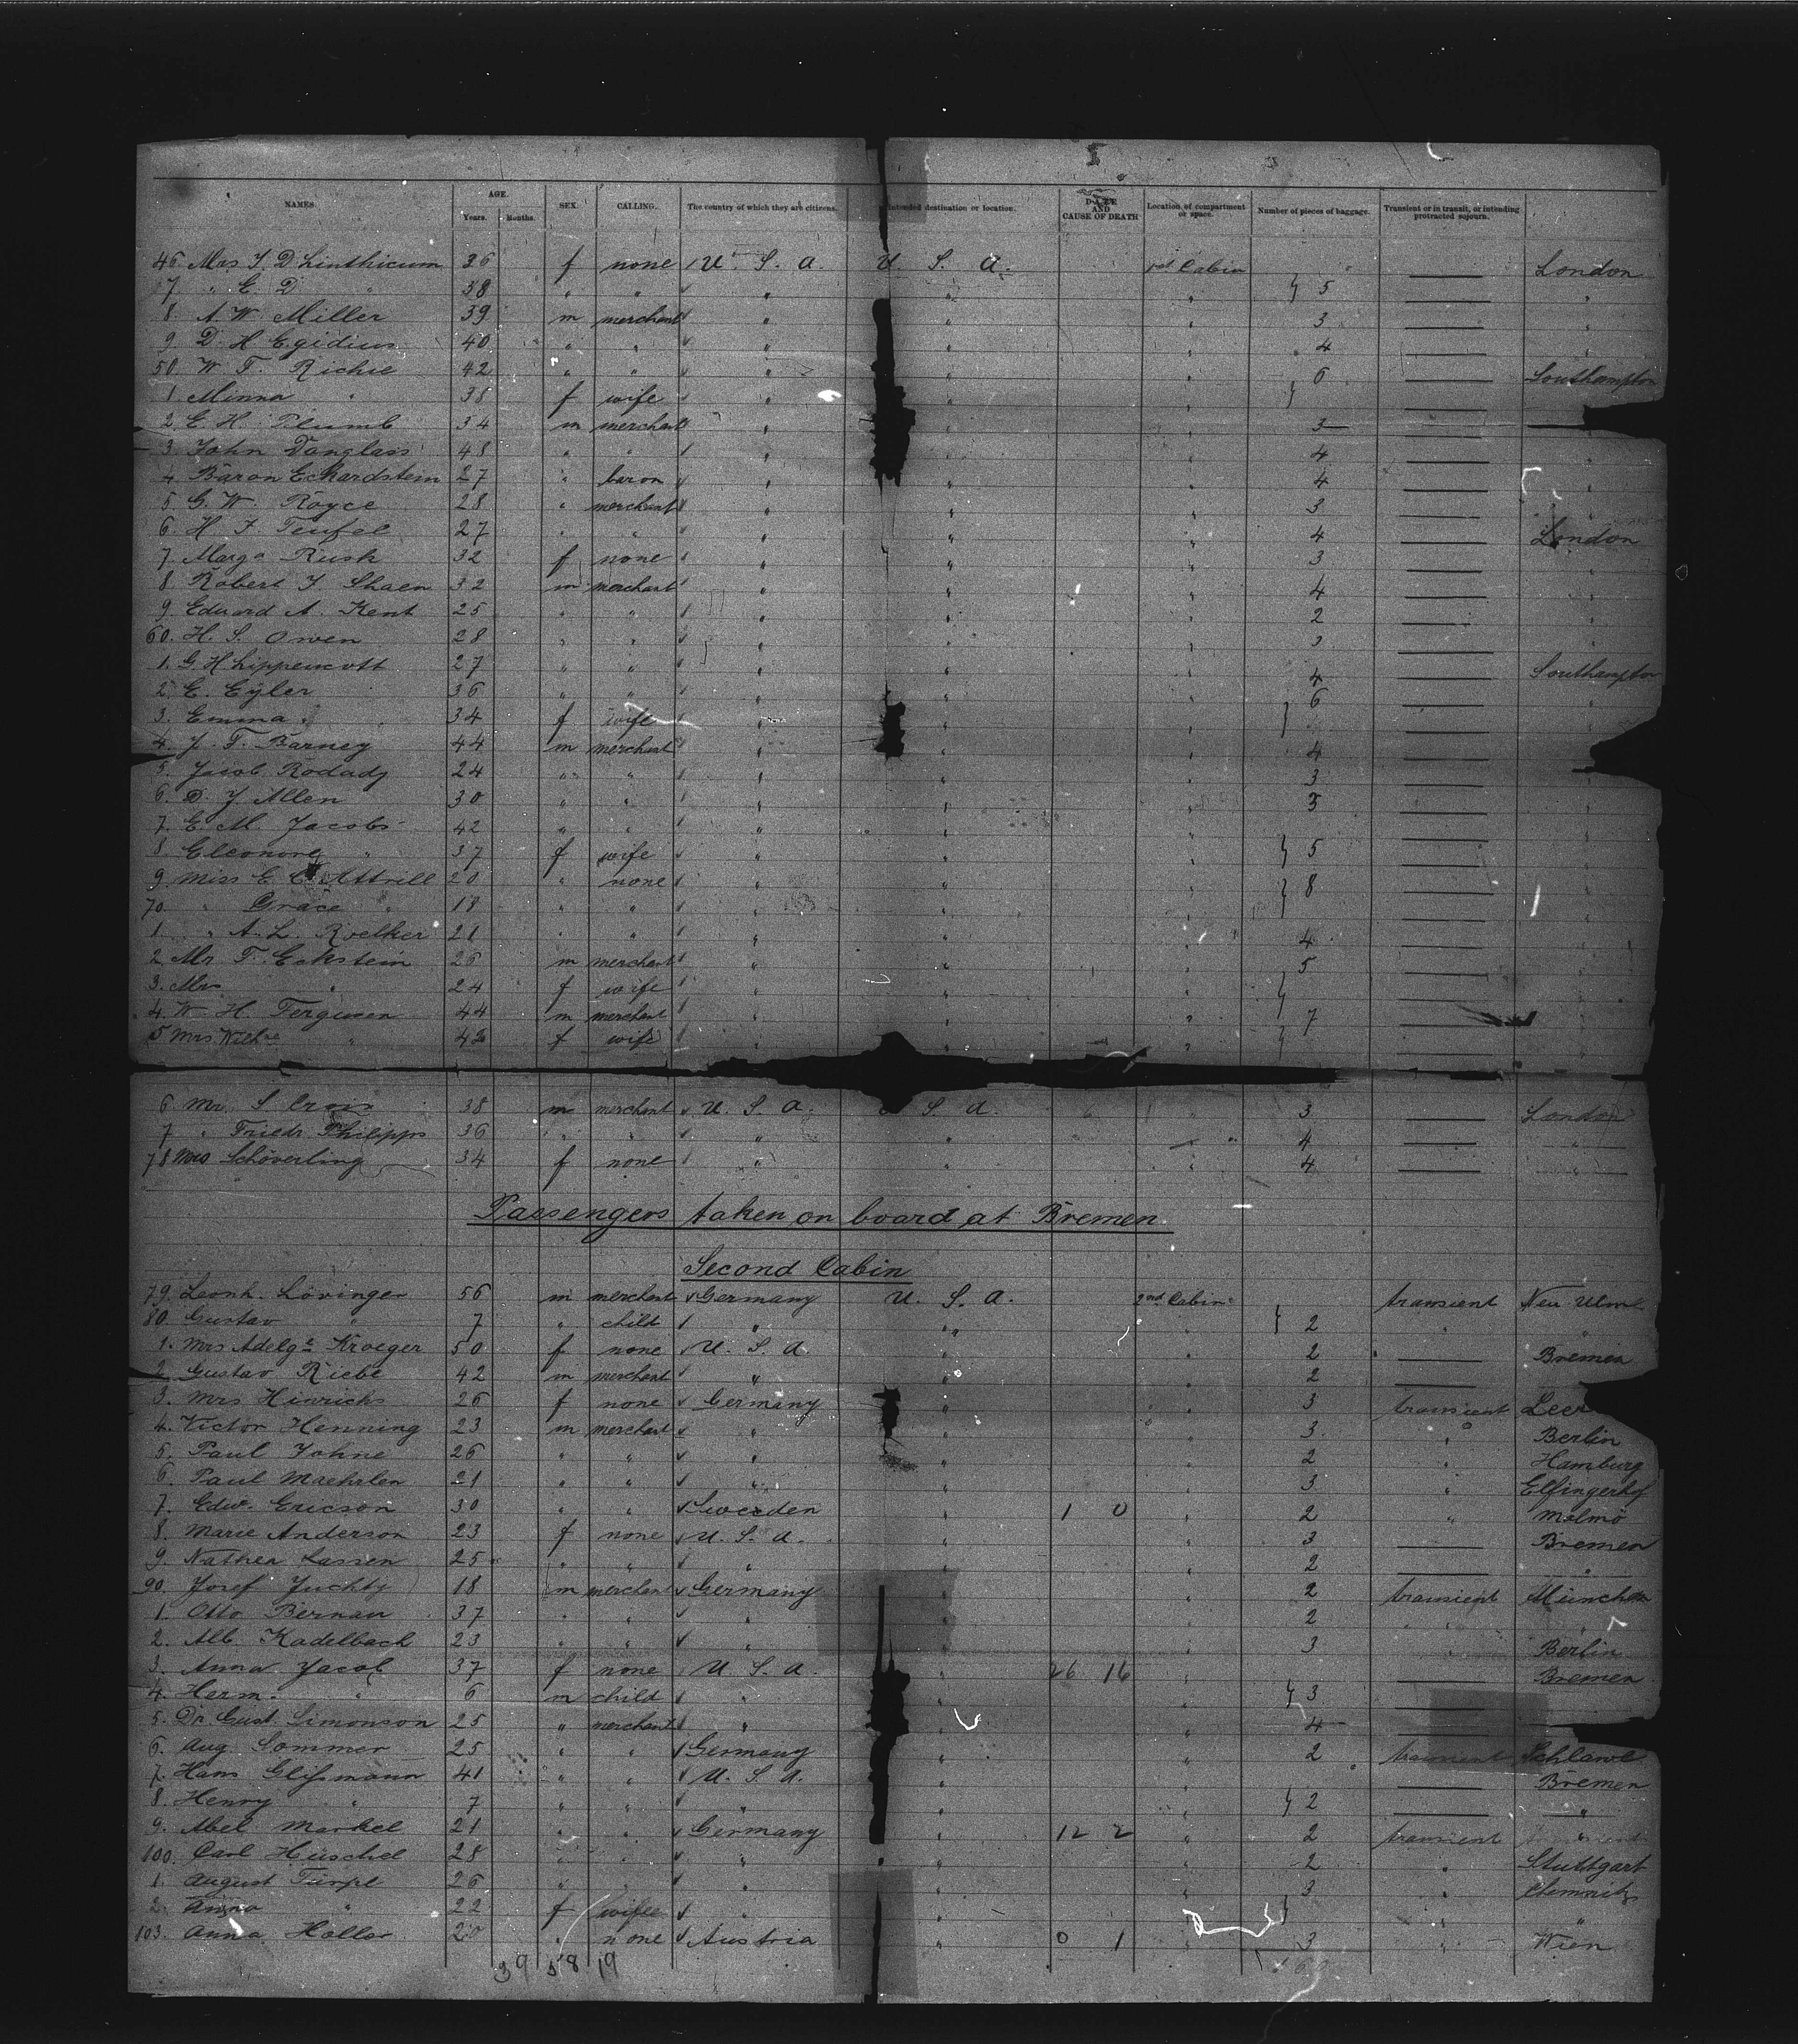 NAMES. AGE. Years. Months. SEX. CALLING. The country of which they are citizens. Intended destination or location. DATE AND CAUSE OF DEATH Location of compartment or space. Number of pieces of baggage. Transient or in transit, or intending protracted sojourn.
46 Mrs J D Linthicum 36 f none U. S. A. U. S. A. 1st Cabin London
7 " E. D " 38 " " " " " 5 "
8 A. W. Miller 39 m merchant " " " 3 "
9 D. H Egidius 40 " " " " " 4 "
50. W. F. Richie 42 " " " " " 6 Southampton
1 Minna " 38 f wife " " "
2 E. H. Plumb 34 m merchant " " " 3
3 John Douglass 48 " " " " " 4 "
4 Baron Eckardstein 27 " baron " " " 4 "
5 G. W. Royce 28 " merchant " " " 3 "
6. H. F Teufel 27 " " " " " 4 London
7. Marga Rush 32 f none " " " 3 "
8 Robert J. Shaen 32 m merchant " " " 4 "
9. Eduard A. Kent 25 " " " " " 2 "
60. H. S. Owen 28 " " " " " 3 "
1. G. H Lippencott 27 " " " " " 4 Southampton
2. E. Eyler 36 " " " " " 6 "
3. Emma " 34 f wife " " " "
4. J. F. Barney 44 m merchant " " " 4
5. Jacob 24 " " " " " 3
6 D. J. Allen 30 " " " " " 3 "
7. E. M. Jacobs 42 " " " " " "
8 Eleonore " 37 f wife " " " 5 "
9 Miss E C Attrill 20 " none " " " 8 "
70. " Grace " 18 " " " " " "
1. " A. L. Roelker 21 " " " " " 4 "
2 Mr F. Eckstein 26 m merchant " " " 5 "
3. Mrs " 24 f wife " " " "
4. W. H. Ferguson 44 m merchant " " " 7
5 Mrs " 42 f wife " " "
6. Mr. S. 38 m merchant U. S. A. S. A. " 3 London
7 " Friedr Philipps 36 " " " " " 4 "
78 Mrs Schöverling 34 f none " " " 4 "
Passengers taken on board at Bremen.
Second Cabin
79. Leonh. Lövinger 56 m merchant Germany U. S. A. 2nd Cabin transient Neu Ulm
80. Gustav " 7 " child " " " 2 " "
1. Mrs Kroeger 50 f none U. S. A. " " 2 Bremen
2. Gustav Riebe 42 m merchant " " " 2
3. Mrs Hinrichs 26 f none Germany " " 3 transient Leer
4. Victor Henning 23 m merchant " " " 3. " Berlin
5. Paul Johne 26 " " " " " 2 " Hamburg
6. Paul Maehrlen 21 " " " " " 3 " Elfingerhof
7. Edw. Ericson 30 " " Sweeden " 1 0 " 2 " Malmö
8. Marie Anderson 23 f none U. S. A. " " 3 Bremen
9. Nathea Lassen 25 " " " " " 2 "
90. Josef Juchty 18 m merchant Germany " " 2 transient München
1. Otto Bernau 37 " " " " " 2 " "
2. Alb. Kadelbach 23 " " " " " 3 " Berlin
3. Anna Jacob 37 f none U. S. A. " 26 16 " Bremen
4. Herm. " 6 m child " " " 3
5. Dr. Gust. Simonson 25 " merchant " " " 4
6. Aug. Sommer 25 " " Germany " " 2 transient Schlawe
7. Hans Glissmann 41 " " U. S. A. " " Bremen
8. Henry " 7 " " " " " 2 "
9. Abel Markel 21 " " Germany " 12 2 " 2 transient
100. Carl Hüschel 28 " " " " " 2 " Stuttgart
1. August Türpe 26 " " " " " 3 " Chemnitz
2. Anna " 22 f wife " " " " "
103. Anna Holler 20 " none Austria " 0 1 " 3 " Wien
39 58 19